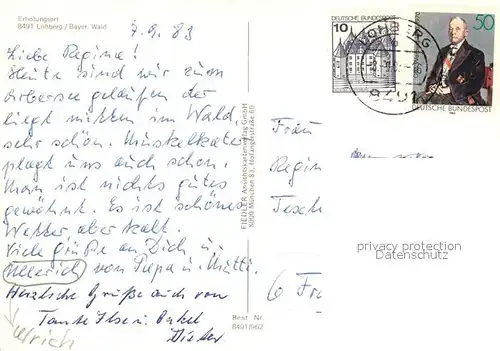 Erholungsort
8491 Lohberg / Bayer. Wald
7.9.83
Liebe Regina!
Heute sind wir zum
Arbersee gelaufen der
liegt mitten im Wald,
sehr schön. Muskelkater
plagt uns auch schon.
Man ist nichts gutes
gewöhnt. Es ist schönes
Wetter aber kalt.
Viele Grüße an Dich u.
Ullerich von Papa u. Mutti.
Herzliche Grüße auch von
Tante Ilse u. Onkel
Dieter
Ulrich
Best. Nr.
8491/962
FIEDLER Ansichtskartenverlag GmbH
8000 München 83
10
DEUTSCHE BUNDESPOST
50
DEUTSCHE BUNDESPOST
LOHBERG
8491
Frau
Regin
Tesch
6 Fra
privacy protection
Datenschutz